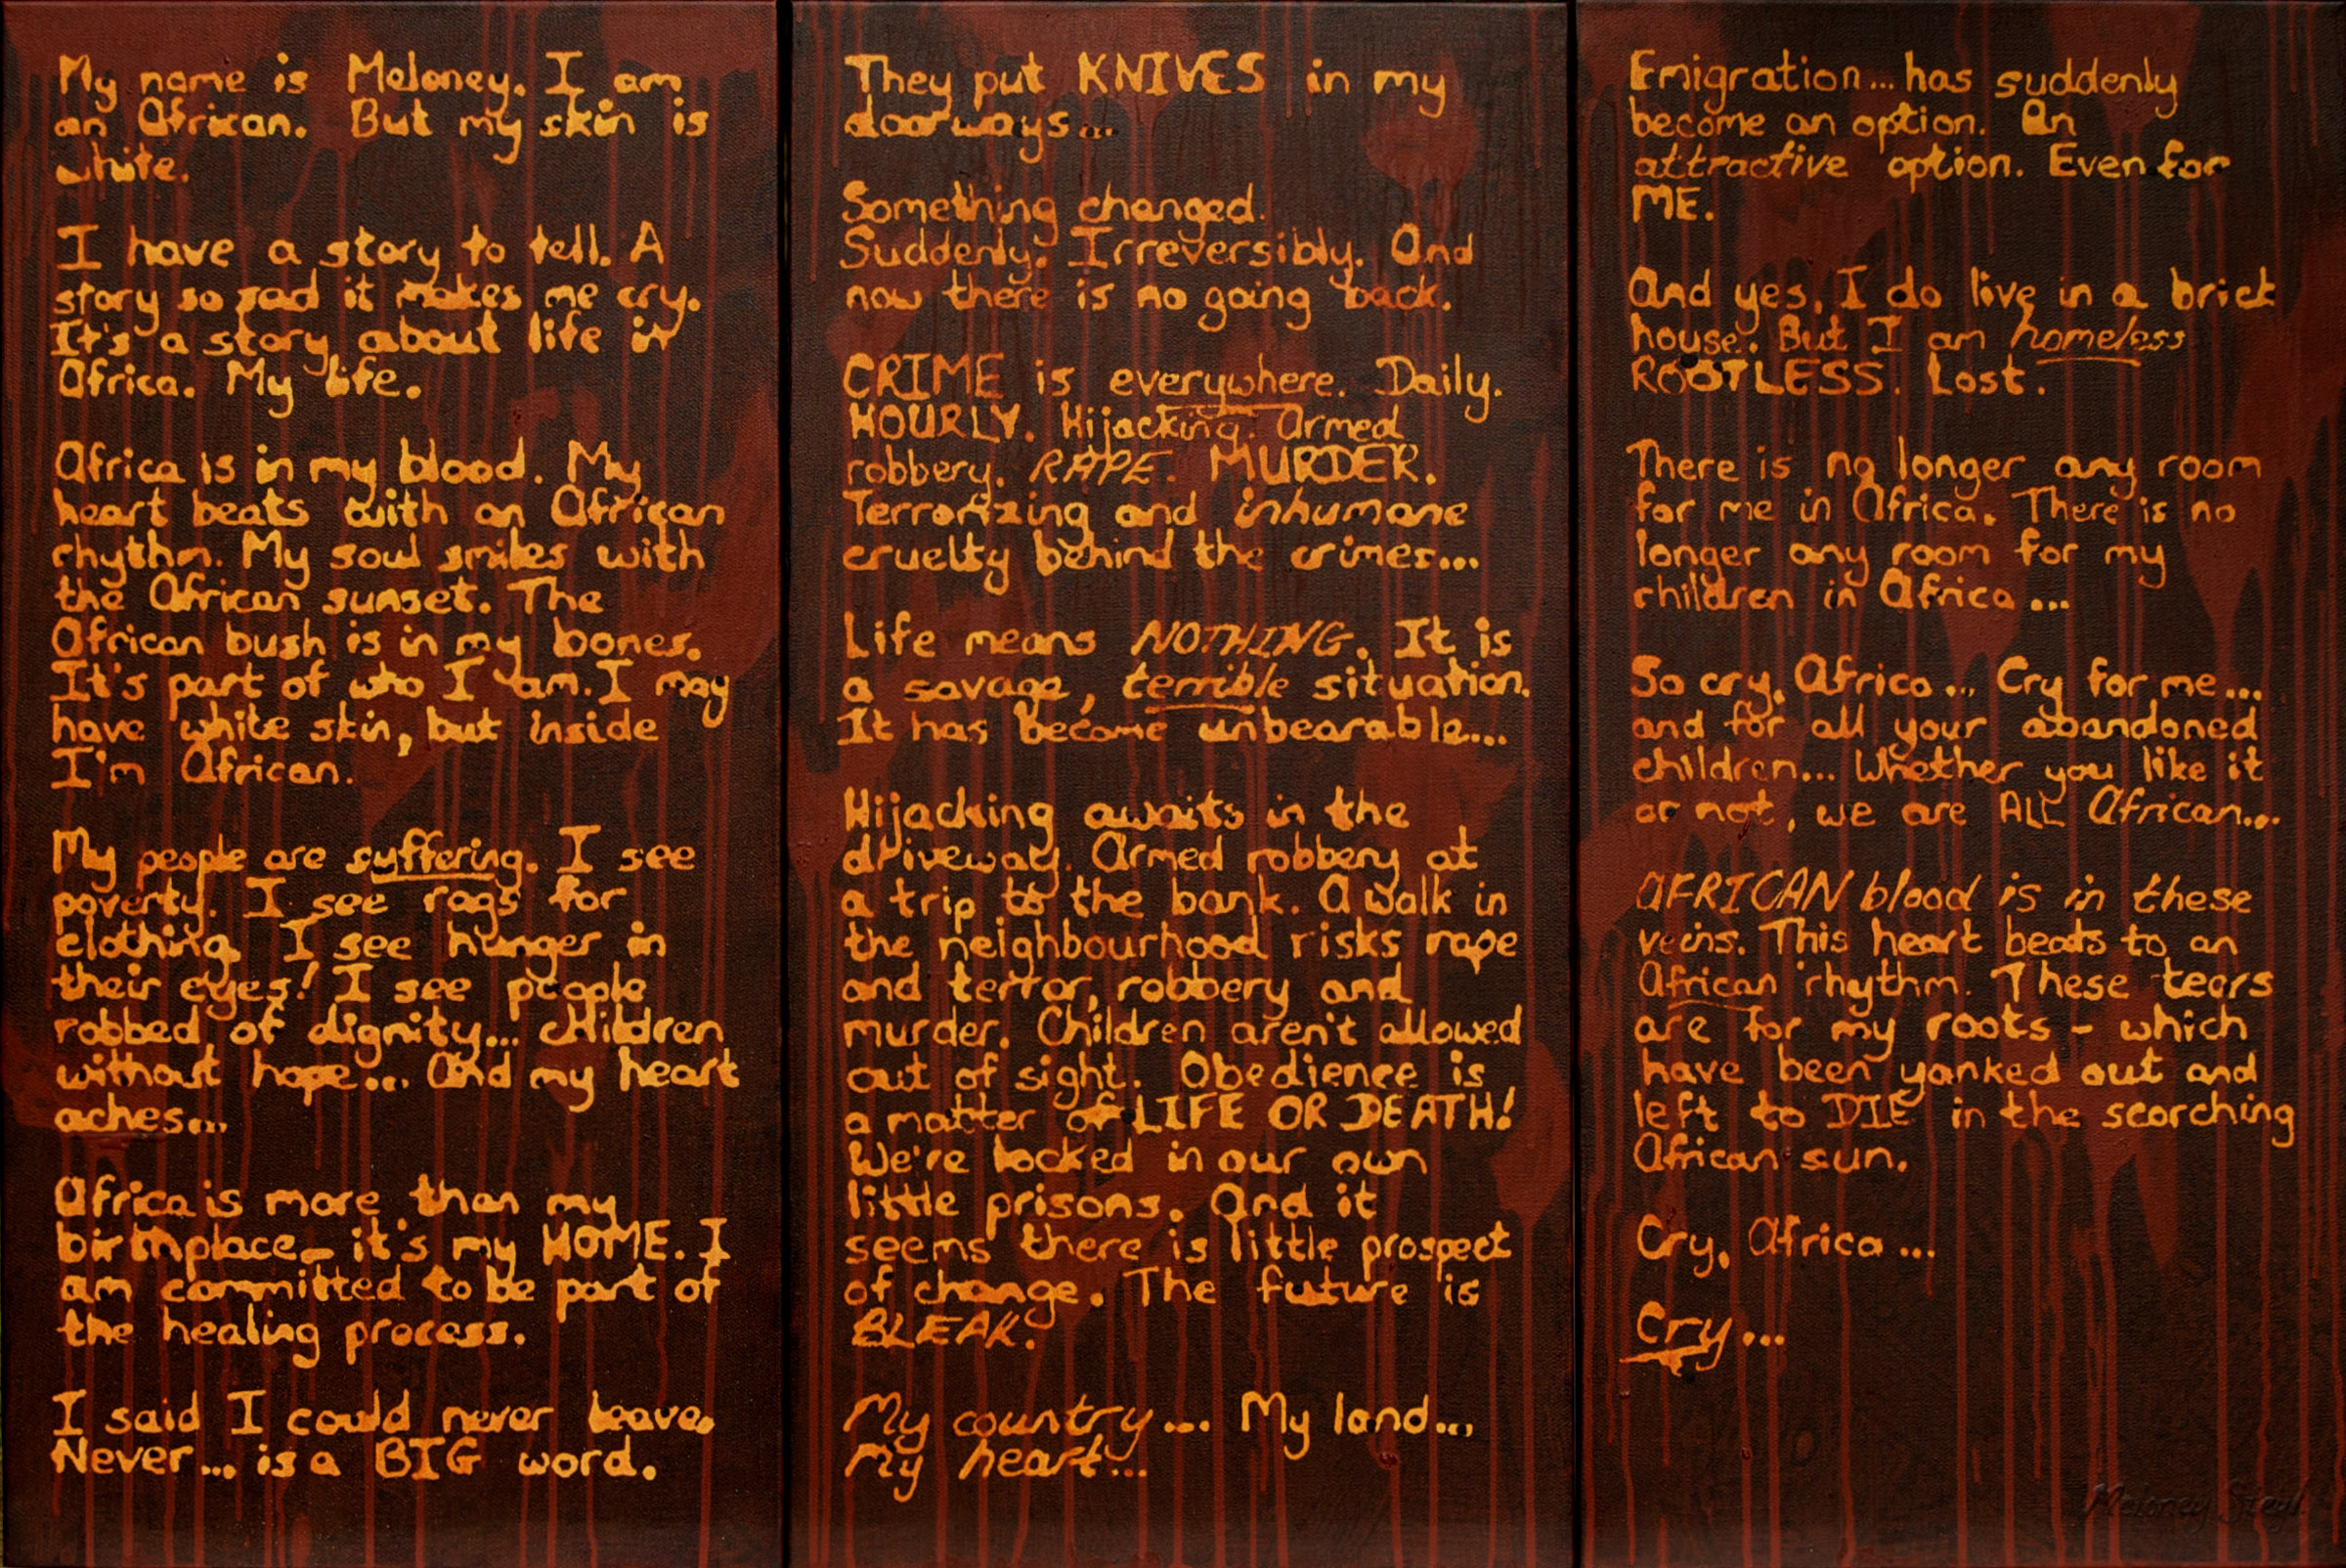 My name is Meloney. I am
an African. But my skin is
white.
I have a story to tell. A
story so sad it makes me cry.
It's a story about life in
Africa. My life.
Africa is in my blood. My
heart beats with an African
rhythm. My soul smiles with
the African sunset. The
African bush is in my bones.
It's part of who I am. I may
have white skin, but inside
I'm African.
My people are suffering. I see
poverty. I see rags for
clothing. I see hunger in
their eyes! I see people
robbed of dignity... children
without hope... And my heart
aches...
Africa is more than my
birthplace - it's my HOME. I
am committed to be part of
the healing process.
I said I could never leave.
Never... is a BIG word.
They put KNIVES in my
doorways...
Something changed.
Suddenly. Irreversibly. And
now there is no going back.
CRIME is everywhere. Daily.
HOURLY. Hijacking. Armed
robbery. RAPE. MURDER.
Terrorizing and inhumane
cruelty behind the crimes...
Life means NOTHING. It is
a savage, terrible situation.
It has become unbearable...
Hijacking awaits in the
driveway. Armed robbery at
a trip to the bank. A walk in
the neighbourhood risks rape
and terror, robbery and
murder. Children aren't allowed
out of sight. Obedience is
a matter of LIFE OR DEATH!
We're locked in our own
little prisons. And it
seems there is little prospect
of change. The future is
BLEAK.
My country... My land...
My heart...
Emigration... has suddenly
become an option. An
attractive option. Even for
ME.
And yes, I do live in a brick
house. But I am homeless
ROOTLESS. Lost.
There is no longer any room
for me in Africa. There is no
longer any room for my
children in Africa...
So cry, Africa... Cry for me...
and for all your abandoned
children... Whether you like it
or not, we are ALL African...
AFRICAN blood is in these
veins. This heart beats to an
African rhythm. These tears
are for my roots - which
have been yanked out and
left to DIE in the scorching
African sun.
Cry, Africa...
Cry...
Meloney Steyl